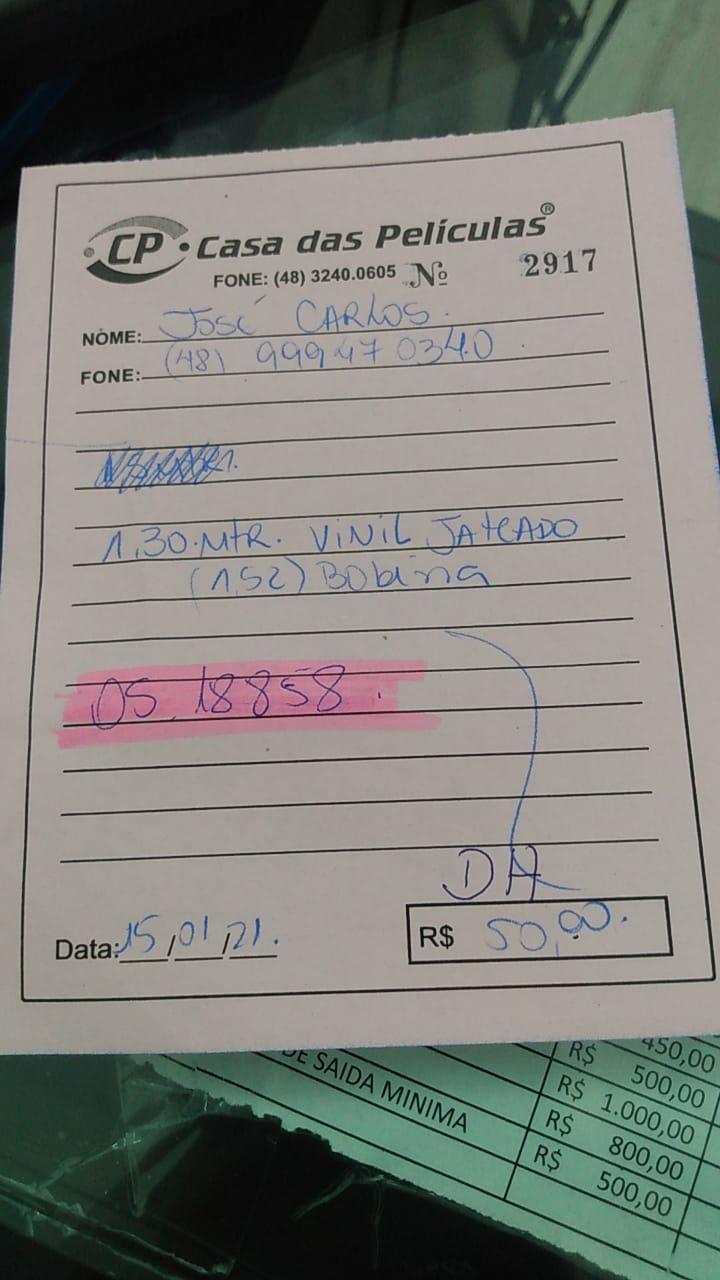 CP Casa das Películas®
FONE: (48) 3240.0605 Nº 2917
NOME: JOSÉ CARLOS.
FONE: (48) 99947 0340.
1,30.MtR. VINIL JATEADO
(1,52) Bobina
OS. 18858.
DH
Data: 15/01/21. R$ 50,00.
450,00
R$ 500,00
DE SAIDA MINIMA R$ 1.000,00
R$ 800,00
R$ 500,00